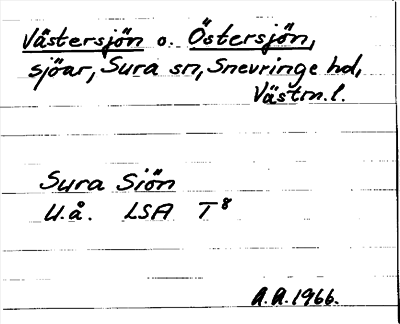 Västersjön o. Östersjön,
sjöar, Sura sn, Snevringe hd,
Västm. l.
Sura Siön
U.å. LSA T⁸
A.A. 1966.